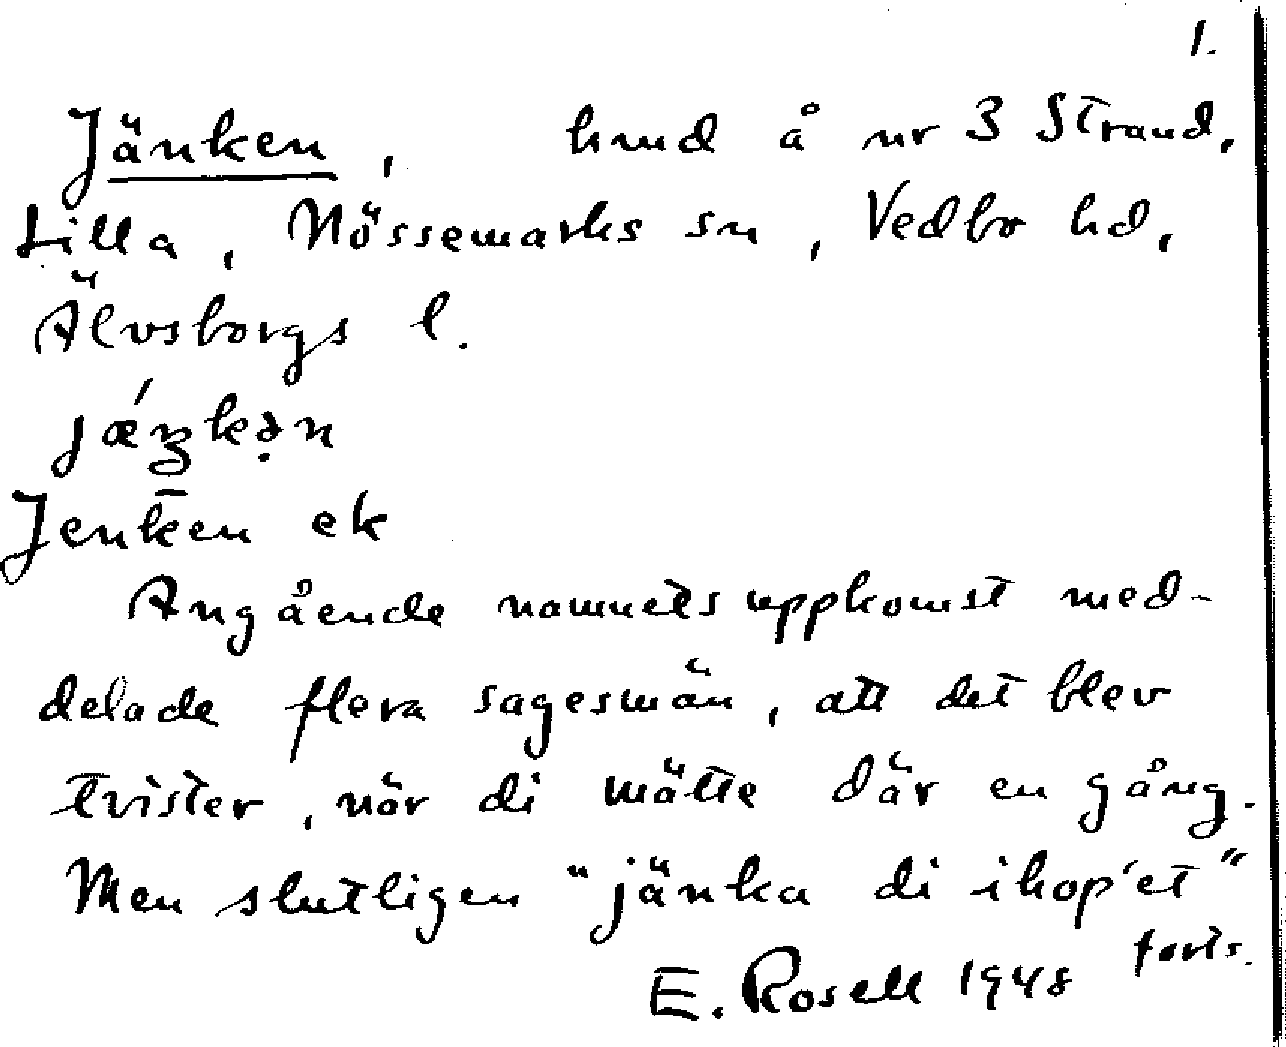 1.
Jänken, hmd å nr 3 Strand,
Lilla, Nössemarks sn, Vedbo hd,
Älvsborgs l.
Jenk̅en ek
Angående namnets uppkomst med-
delade flera sagesmän, att det blev
tvister, när di mätte där en gång.
Men slutligen "jänka di ihop'et"
forts.
E. Rosell 1948